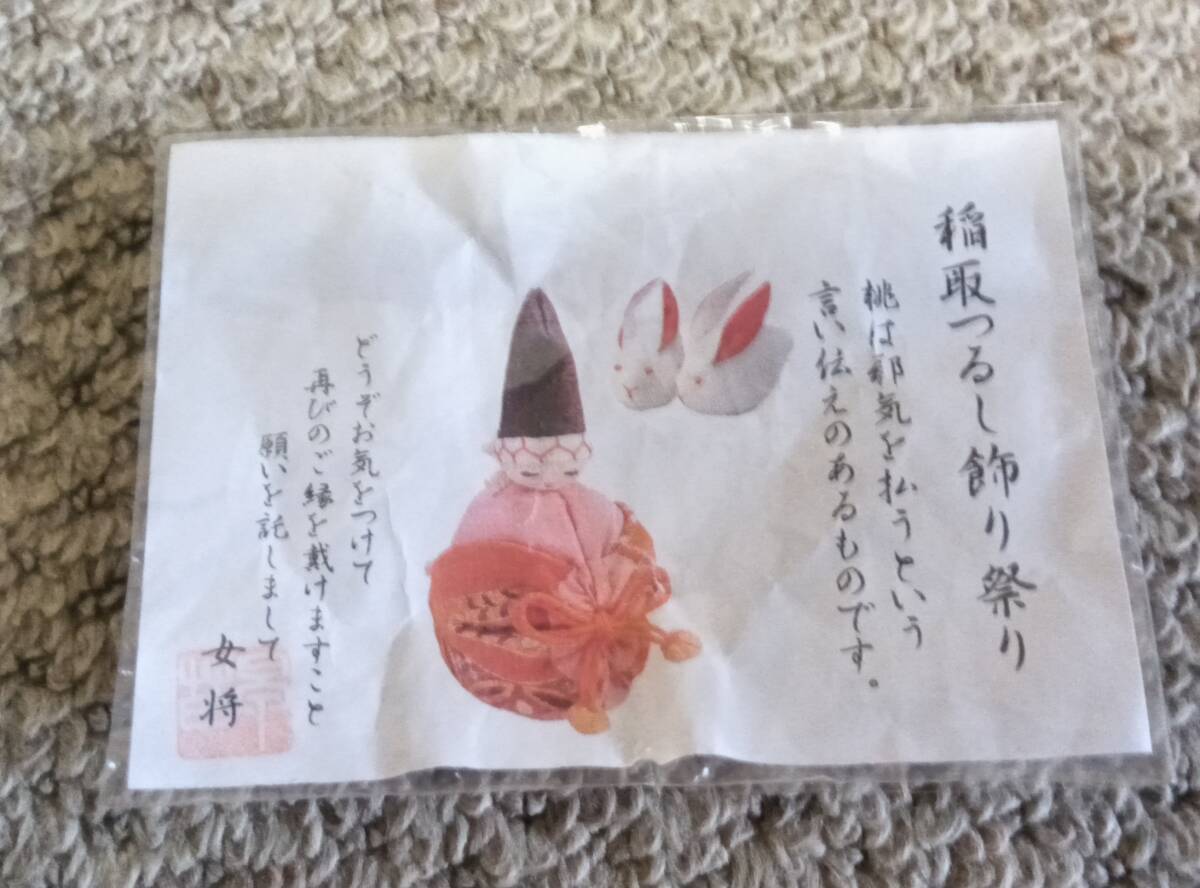 稲取つるし飾り祭り
桃は邪気を払うという
言い伝えのあるものです。
どうぞお気をつけて
再びのご縁を戴けますこと
願いを託しまして
女将